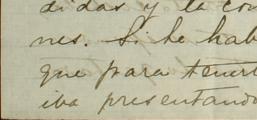 didas y la con
nes. Si he hab
que para tener
iba presentando